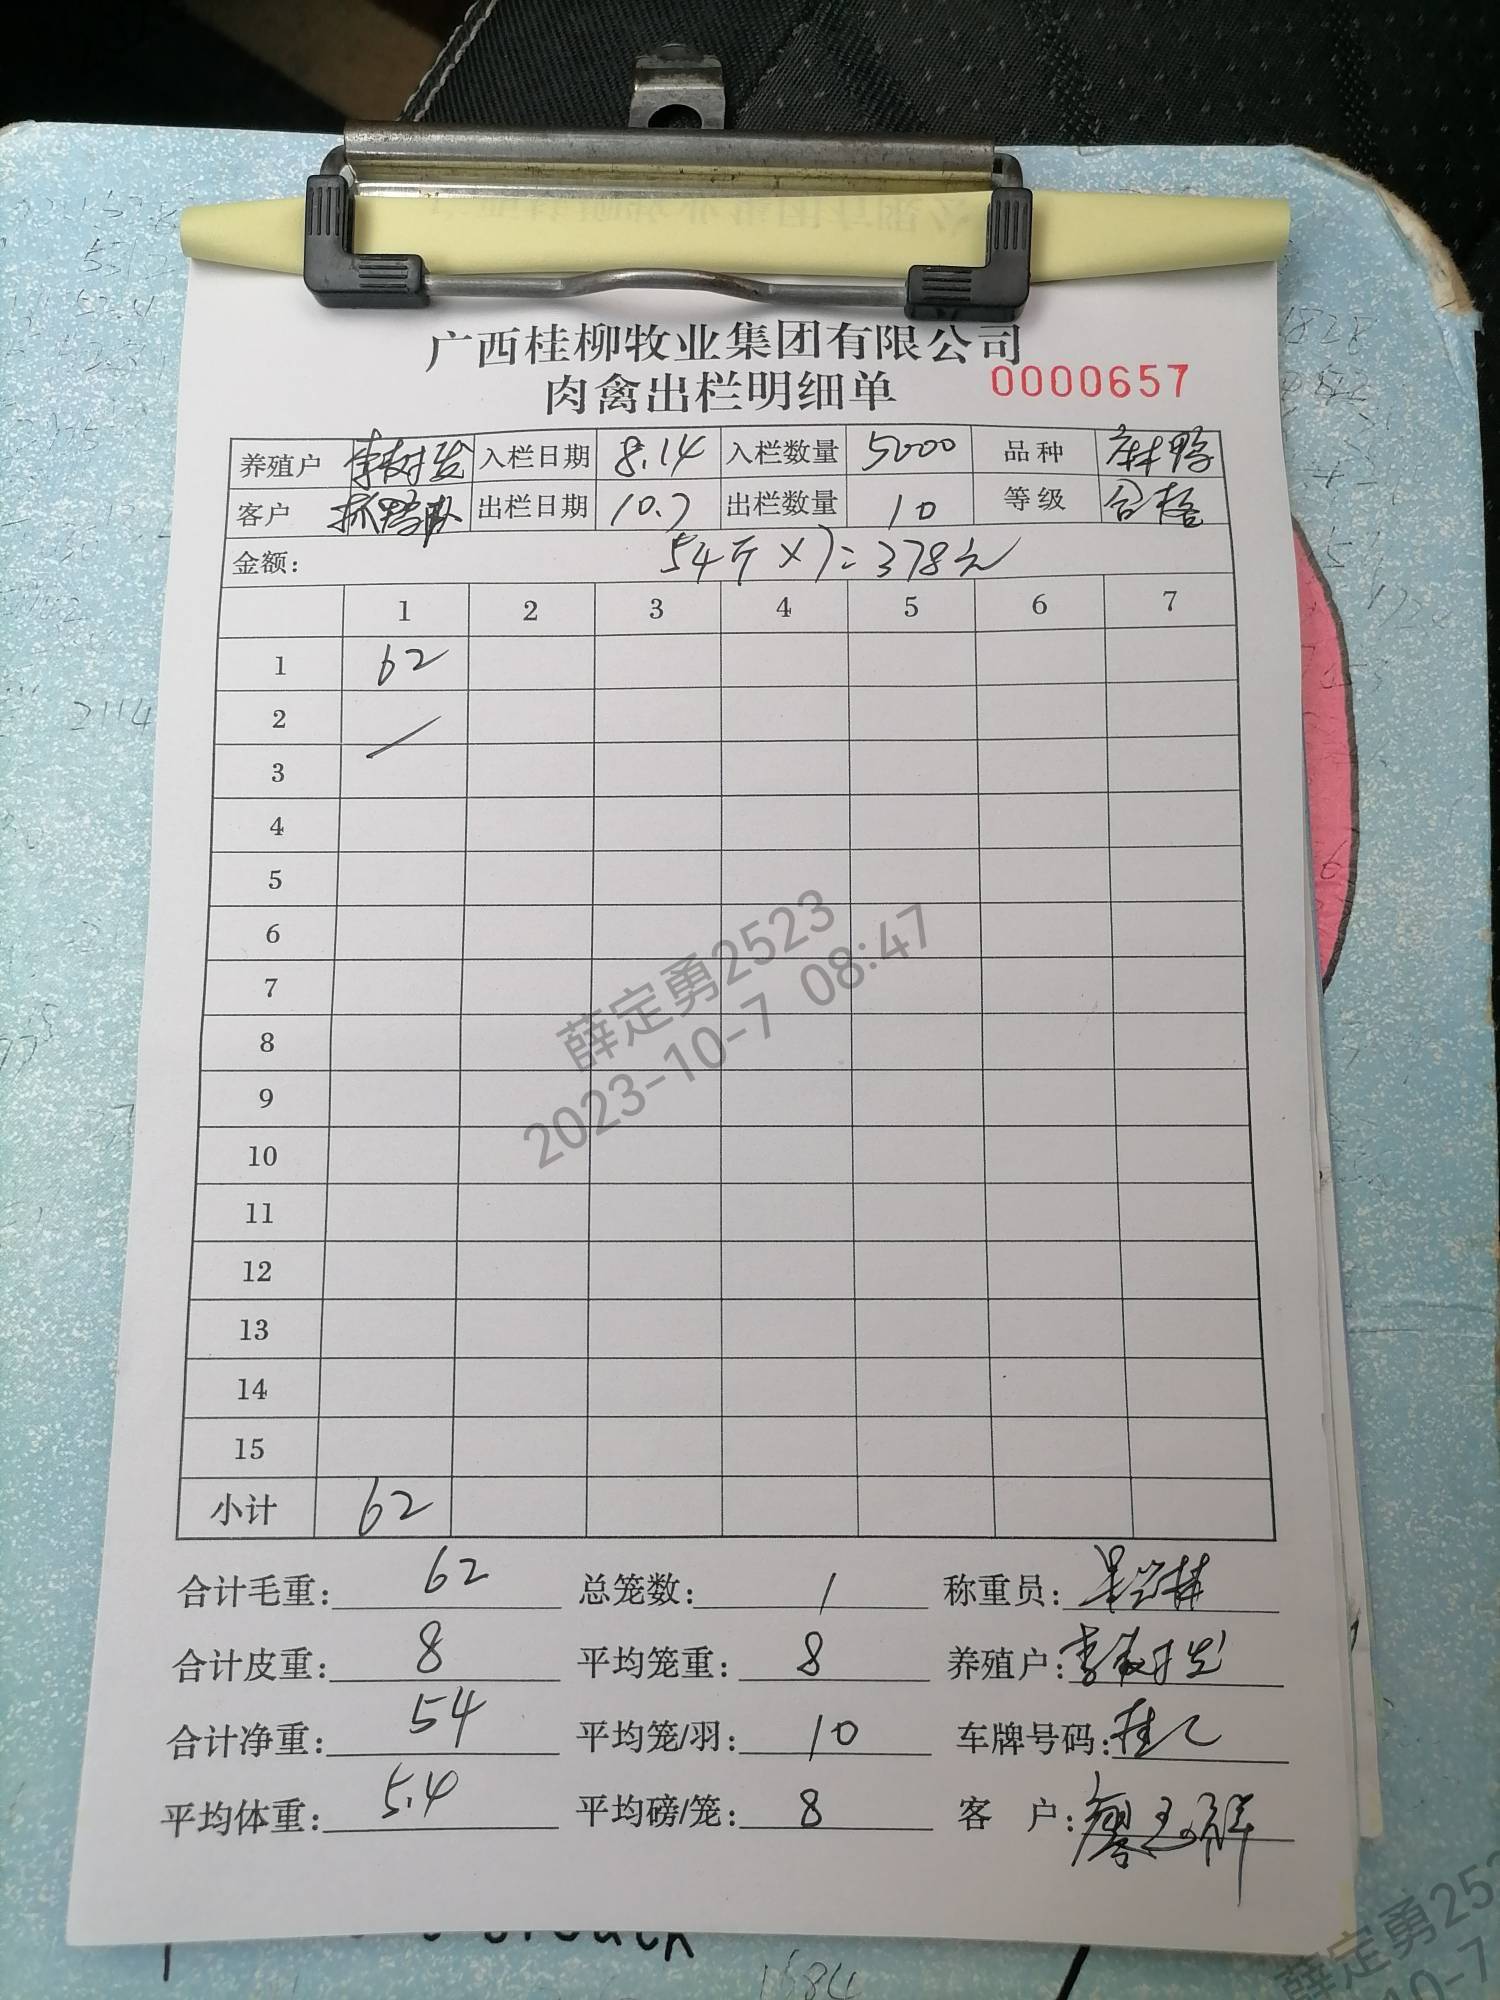 广西桂柳牧业集团有限公司
肉禽出栏明细单 0000657
养殖户 李树发 入栏日期 8.14 入栏数量 5000 品种 麻鸭
客户 抓鸭队 出栏日期 10.7 出栏数量 10 等级 合格
金额: 54斤×7=378元
1 2 3 4 5 6 7
1 62
2
3
4
5
6
7
8
9
10
11
12
13
14
15
小计 62
合计毛重: 62 总笼数: 1 称重员:
合计皮重: 8 平均笼重: 8 养殖户: 李树发
合计净重: 54 平均笼/羽: 10 车牌号码:
平均体重: 5.4 平均磅/笼: 8 客 户:
薛定勇2523
2023-10-7 08:47
2114
1584
薛定勇25
10-7